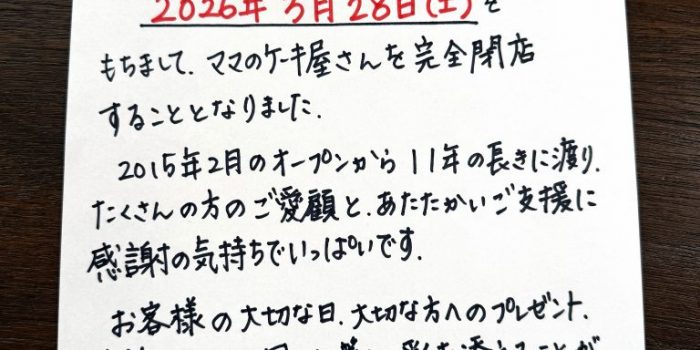 2026年3月28日(土)を
もちまして、ママのケーキ屋さんを完全閉店
することとなりました.
2015年2月のオープンから11年の長きに渡り、
たくさんの方のご愛顧と、あたたかいご支援に
感謝の気持ちでいっぱいです.
お客様の大切な日、大切な方へのプレゼント、